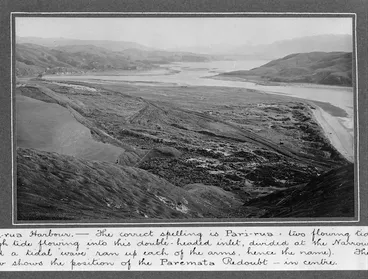 -rua Harbour. — The correct spelling is Pari-rua: two flowing tid
gh tide flowing into this double-headed inlet, divided at the Narrow
d a tidal wave ran up each of the arms, hence the name). The
w shows the position of the Paremata Redoubt — in centre.